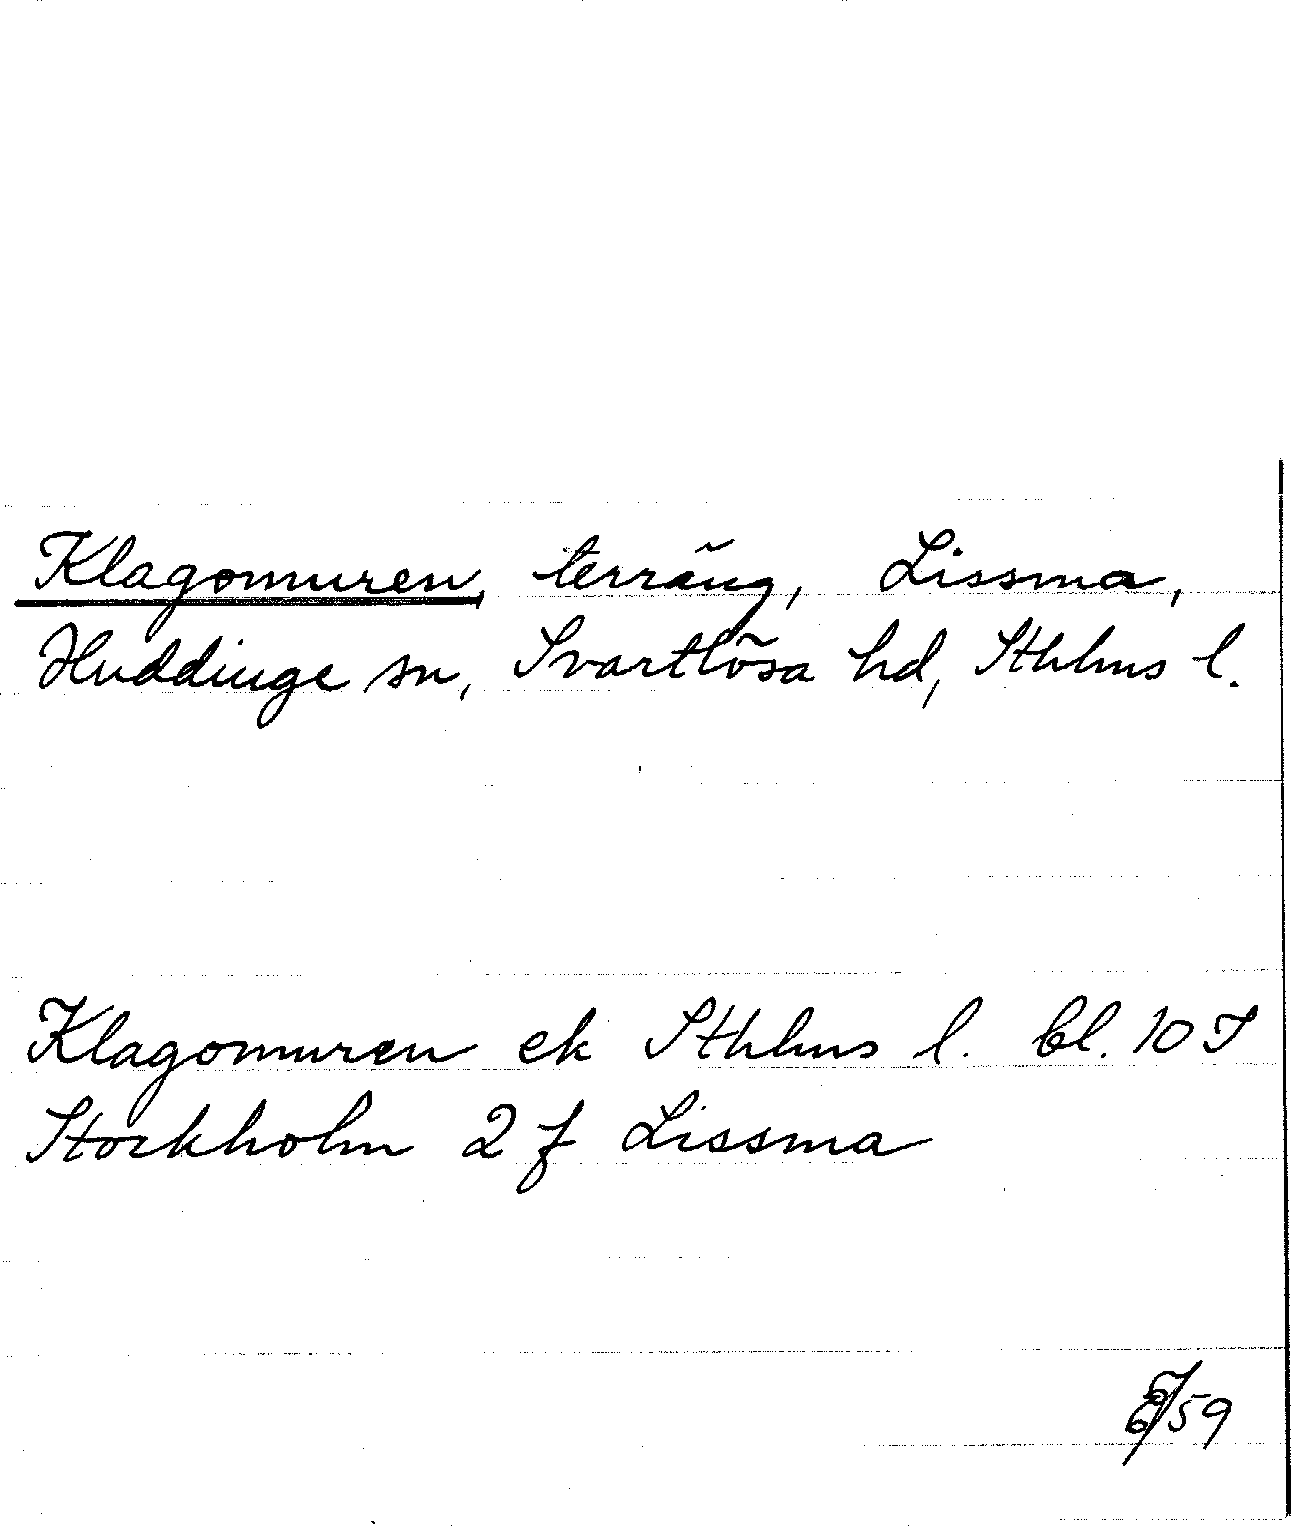 Klagomuren, terräng, Lissma,
Huddinge sn, Svartlösa hd, Sthlms l.
Klagomuren ek Sthlms l. bl. 10 I
Stockholm 2 f Lissma
/59